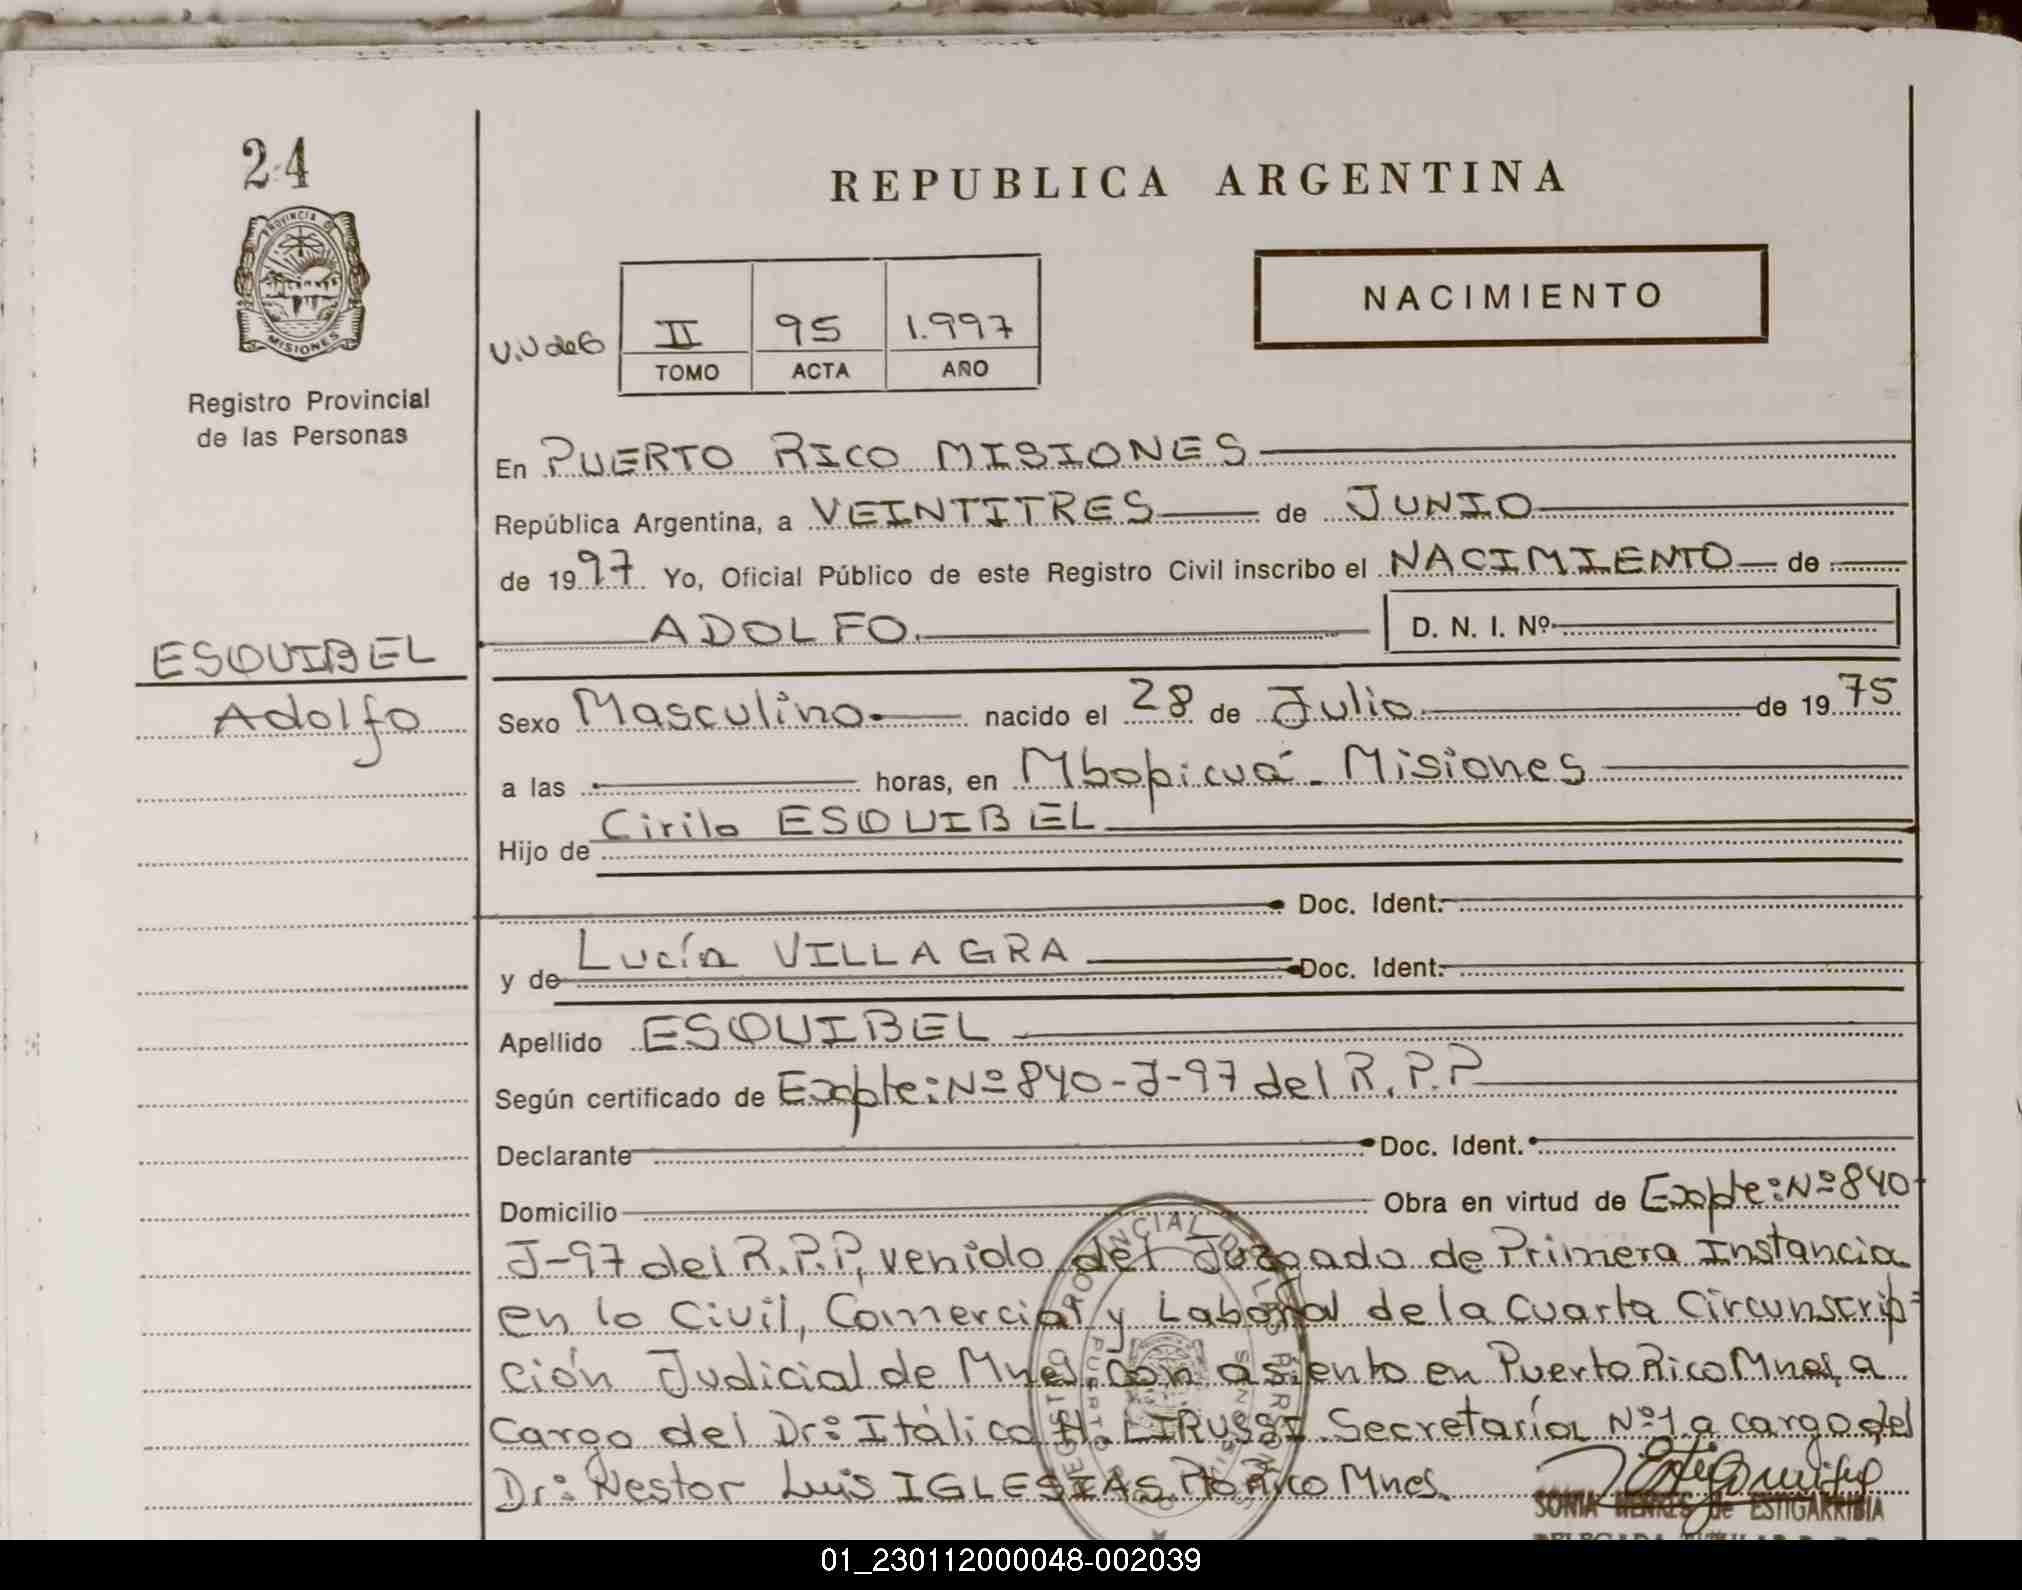 24
REPUBLICA ARGENTINA
PROVINCIA DE
MISIONES
NACIMIENTO
II 95 1.997
TOMO ACTA AÑO
Registro Provincial
de las Personas
En PUERTO RICO MISIONES
República Argentina, a VEINTITRES de JUNIO
de 1997 Yo, Oficial Público de este Registro Civil inscribo el NACIMIENTO de
ADOLFO. D. N. I. Nº
ESQUIBEL
Adolfo
Sexo Masculino nacido el 28 de Julio de 1975
a las horas, en Mbopicuá - Misiones
Cirilo ESQUIBEL
Hijo de
Doc. Ident.
Lucía VILLAGRA
y de Doc. Ident.
Apellido ESQUIBEL
Según certificado de Expte: Nº 840-J-97 del R.P.P
Declarante Doc. Ident.
Domicilio Obra en virtud de Expte: Nº 840-
J-97 del R.P.P, venido del Juzgado de Primera Instancia
en lo Civil, Comercial y Laboral de la Cuarta Circunscrip=
ción Judicial de Mnes. con asiento en Puerto Rico Mnes, a
Cargo del Dr: Itálico H. LIRUSSI. Secretaría Nº 1 a cargo del
Dr: Nestor Luis IGLESIAS. Pto Rico Mnes.
SONIA HENKES de ESTIGARRIBIA
01_230112000048-002039